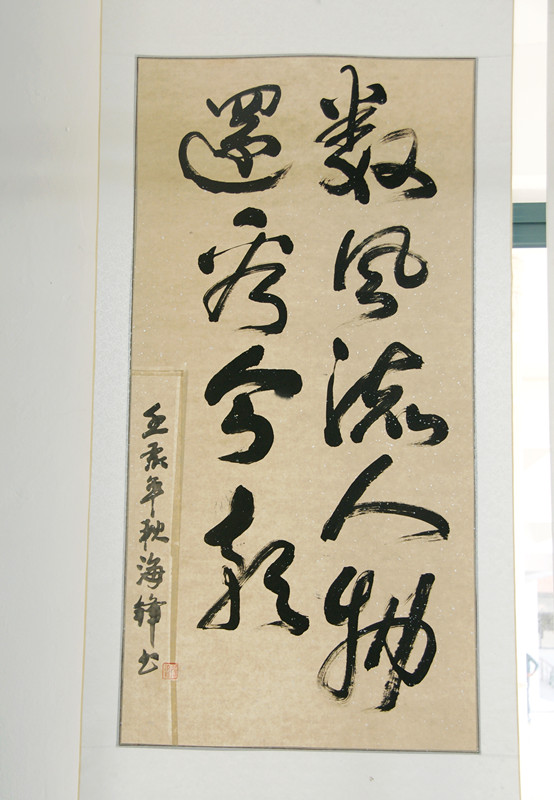 数風流人物
還看今朝
壬辰年秋海鋒书